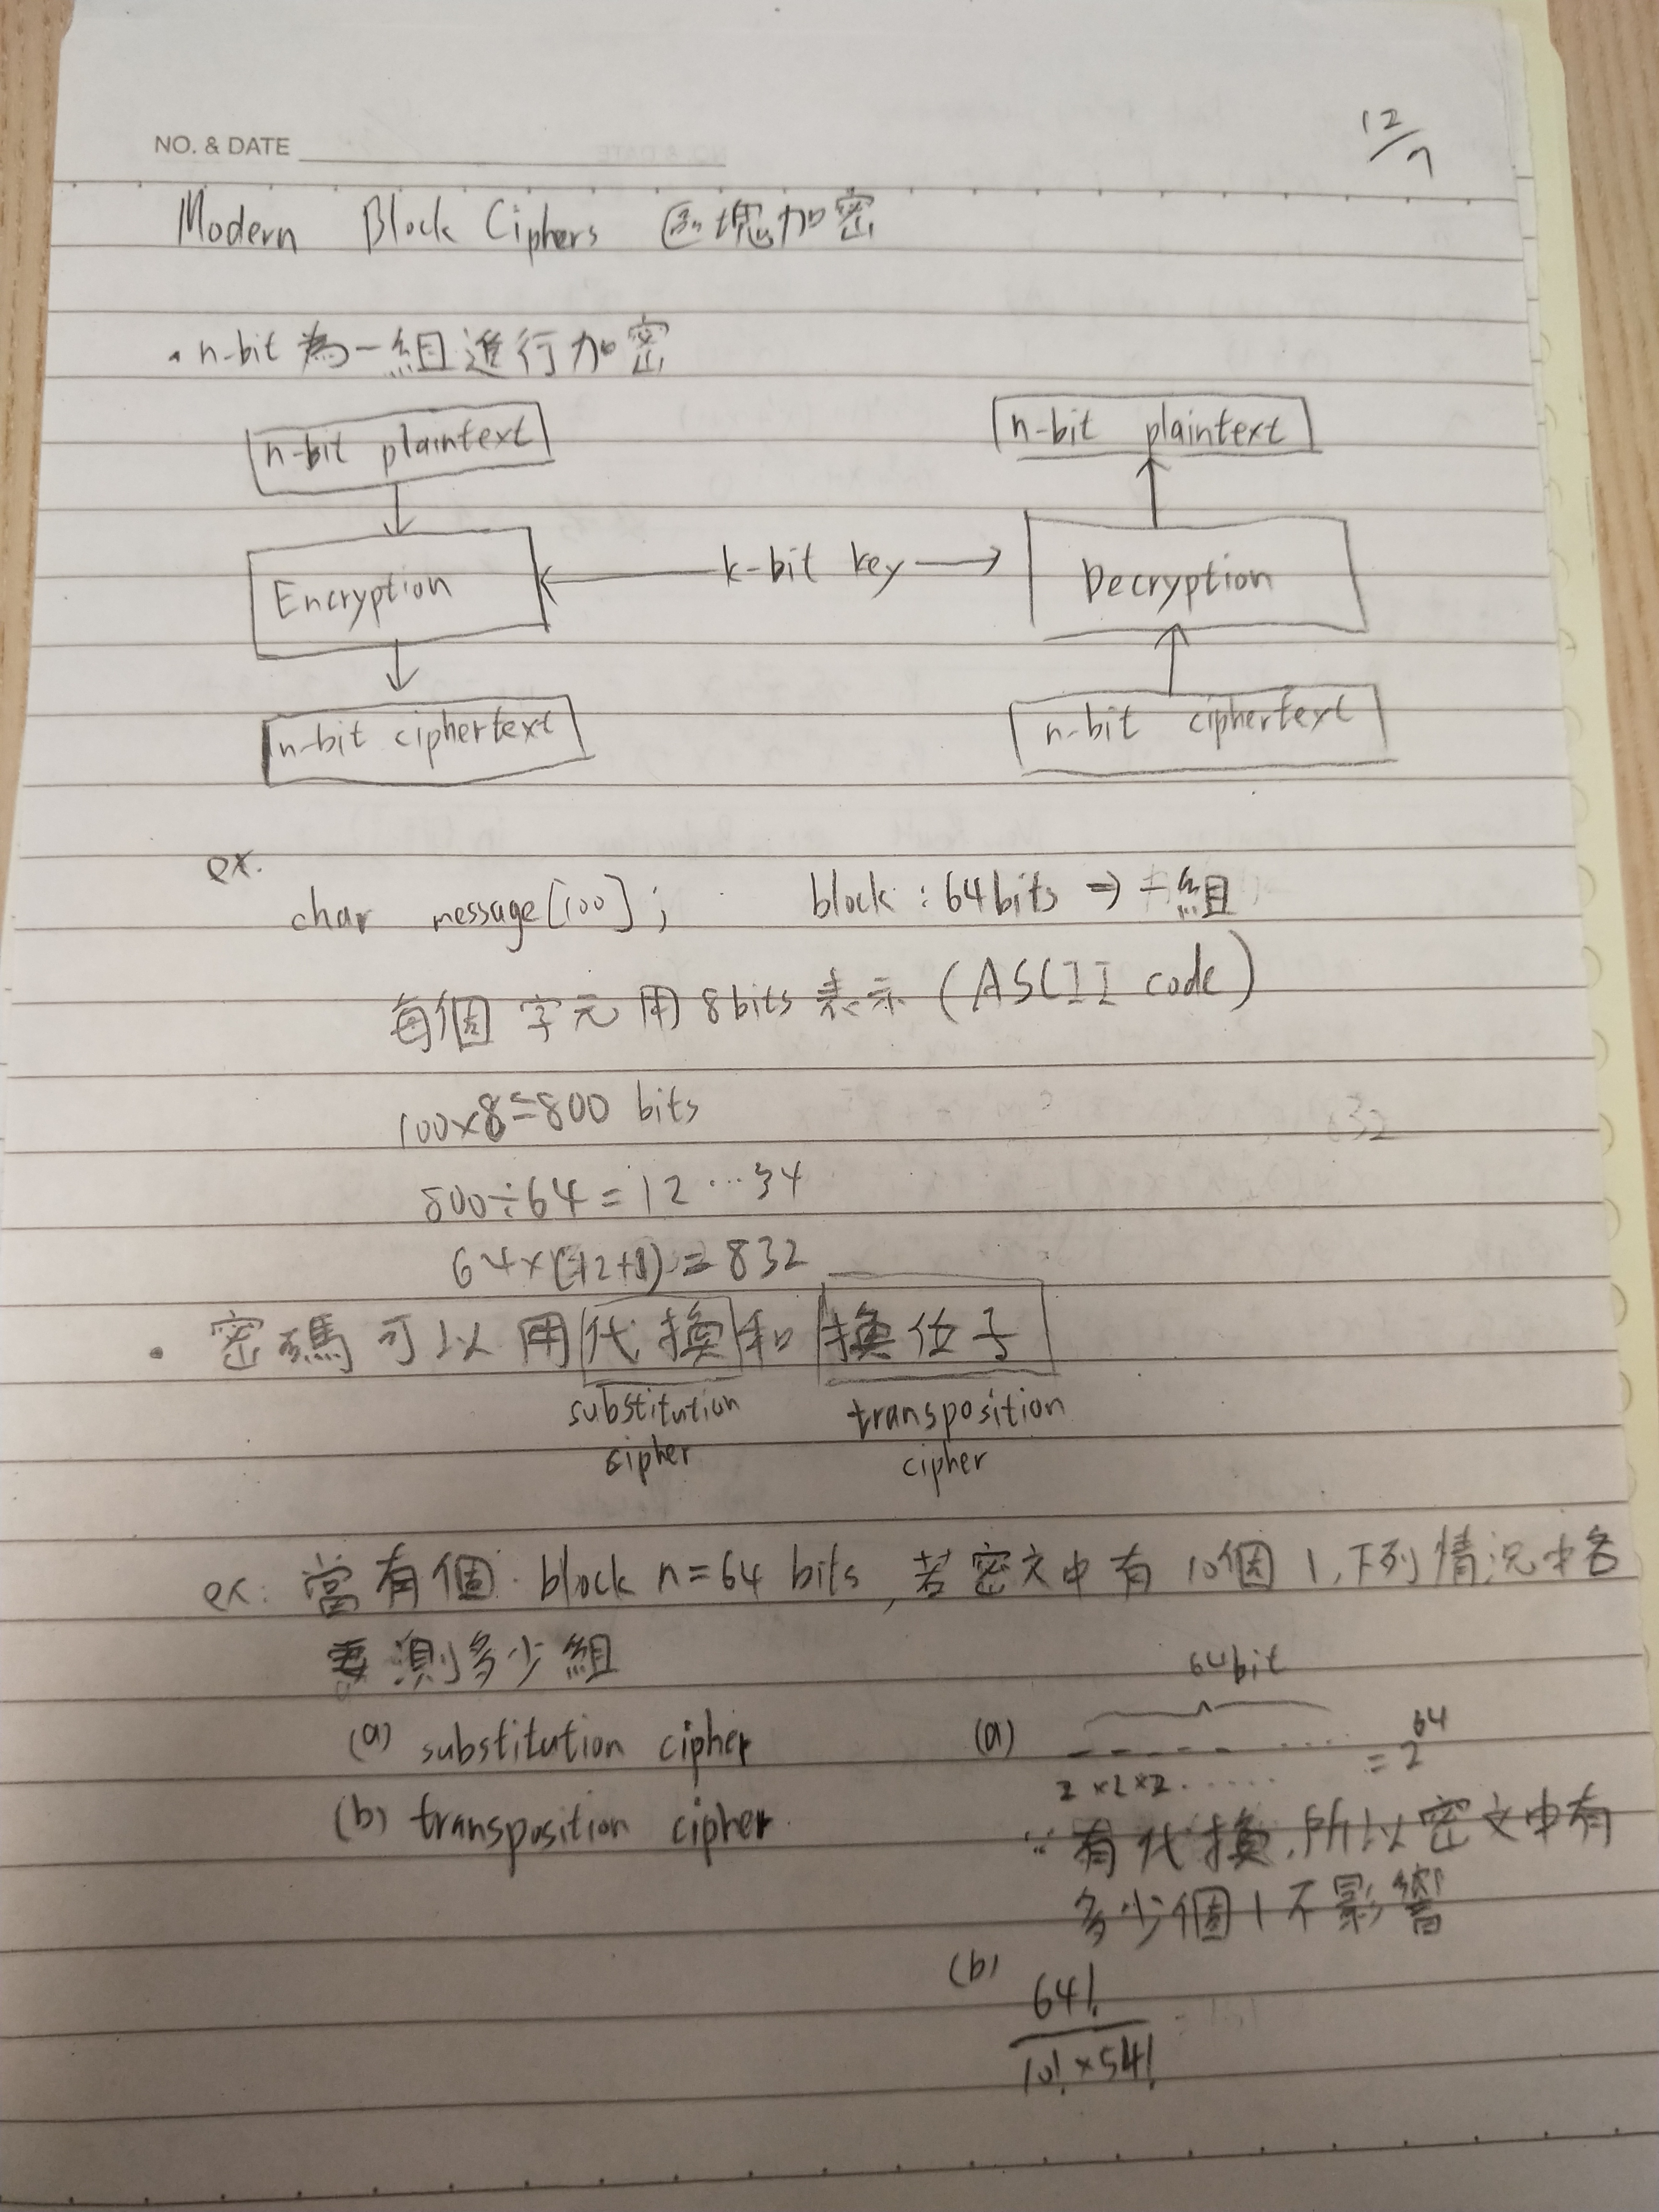 12/7
NO. & DATE
Modern Block Ciphers 區塊加密
• n-bit 為一組進行加密
n-bit plaintext n-bit plaintext
Encryption k-bit key Decryption
n-bit ciphertext n-bit ciphertext
ex.
char message[100]; block : 64bits ⇒ 一組
每個字元用8bits表示 (ASCII code)
100×8=800 bits
800÷64=12…34
64×(12+1)=832
• 密碼可以用代換和換位子
substitution cipher transposition cipher
ex: 當有個 block n=64 bits, 若密文中有10個1,下列情況中各
要測多少組
(a) substitution cipher
(b) transposition cipher
64bit
(a) _ _ _ _ _ ...... = 2^64
2×2×2......
∵有代換,所以密文中有
多少個1不影響
(b) 64! / 10!×54!